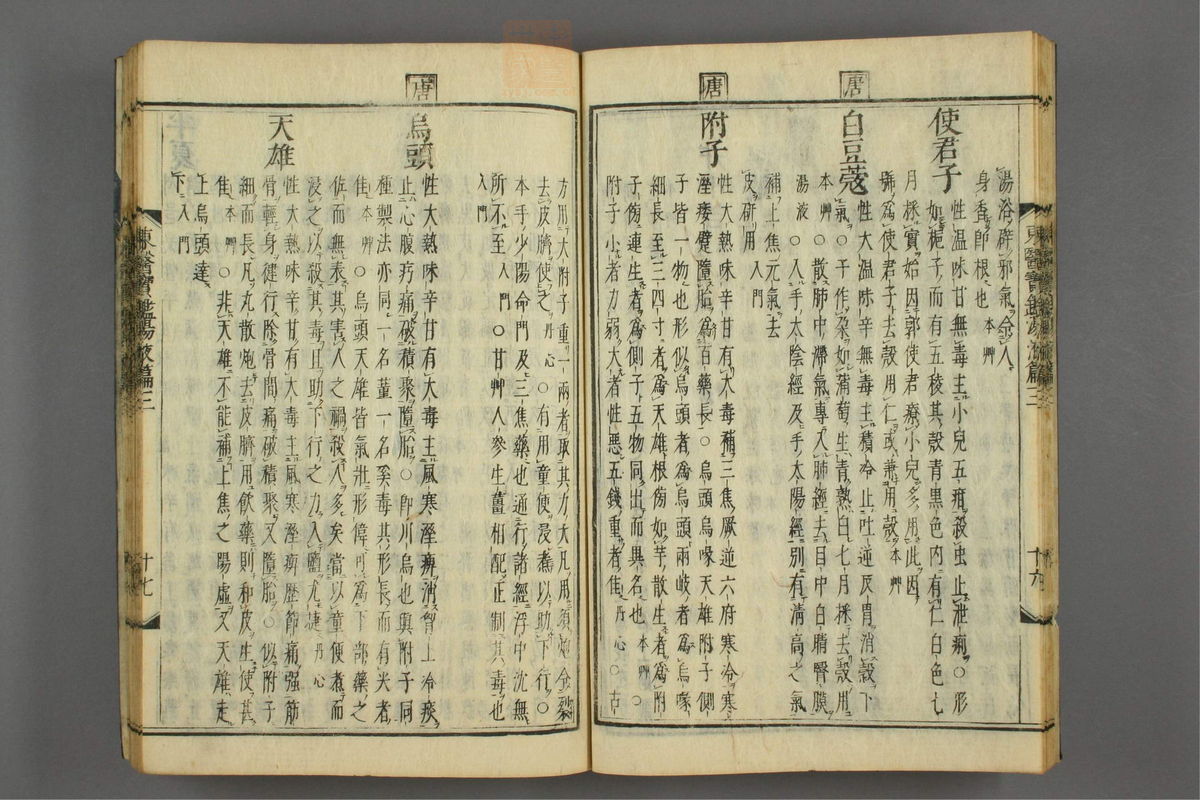 湯浴辟邪氣令人
身香卽根也本艸
使君子
性温味甘無毒主小兒五疳殺虫止泄痢○形
如梔子而有五稜其殼青黑色内有仁白色七
月採實始因郭使君療小兒多用此因
號爲使君子子去殼用仁或兼用殼本艸
唐
白豆蔲
性大温味辛無毒主積冷止吐逆反胃消穀下
氣○子作朶如蒲萄生青熟白七月採去殼用
本艸○散肺中滯氣專入肺經去目中白睛腎膜
湯液○入手太陰經及手太陽經別有清高之氣
補上焦元氣去
皮硏用入門
唐
附子
性大熱味辛甘有大毒補三焦厥逆六府寒冷寒
溼痿躄墮胎爲百藥長○烏頭烏喙天雄附子側
子皆一物也形似烏頭者爲烏頭兩岐者爲烏喙
細長至三四寸者爲天雄根傍如芋散生者爲附
子傍連生者爲側子五物同出而異名也本艸○
附子小者力弱大者性惡五錢重者佳丹心○古
方用大附子重一兩者取其力大凡用須炮令裂
去皮臍使之丹心○有用童便浸煮以助下行○
本手少陽命門及三焦藥也通行諸經浮中沈無
所不至入門○甘艸人參生薑相配正制其毒也
入門
唐
烏頭
性大熱味辛甘有大毒主風寒溼痹消胷上冷痰
止心腹疞痛破積聚墮胎○卽川烏也與附子同
種製法亦同一名菫一名奚毒其形長而有尖者
佳本艸○烏頭天雄皆氣壯形偉可爲下部藥之
佐而無表其害人之禍殺人多矣當以童便煮而
浸之以殺其毒且助下行之力入鹽尤捷丹心
天雄
性大熱味辛甘有大毒主風寒溼痹歷節痛強筋
骨輕身健行除骨間痛破積聚又墮胎○似附子
細而長凡丸散炮去皮臍用飮藥則和皮生使甚
佳本艸○非天雄不能補上焦之陽虛又天雄走
上烏頭達
下入門
東醫寶鑑湯液篇三
十六
東醫寶鑑湯液篇三
十七